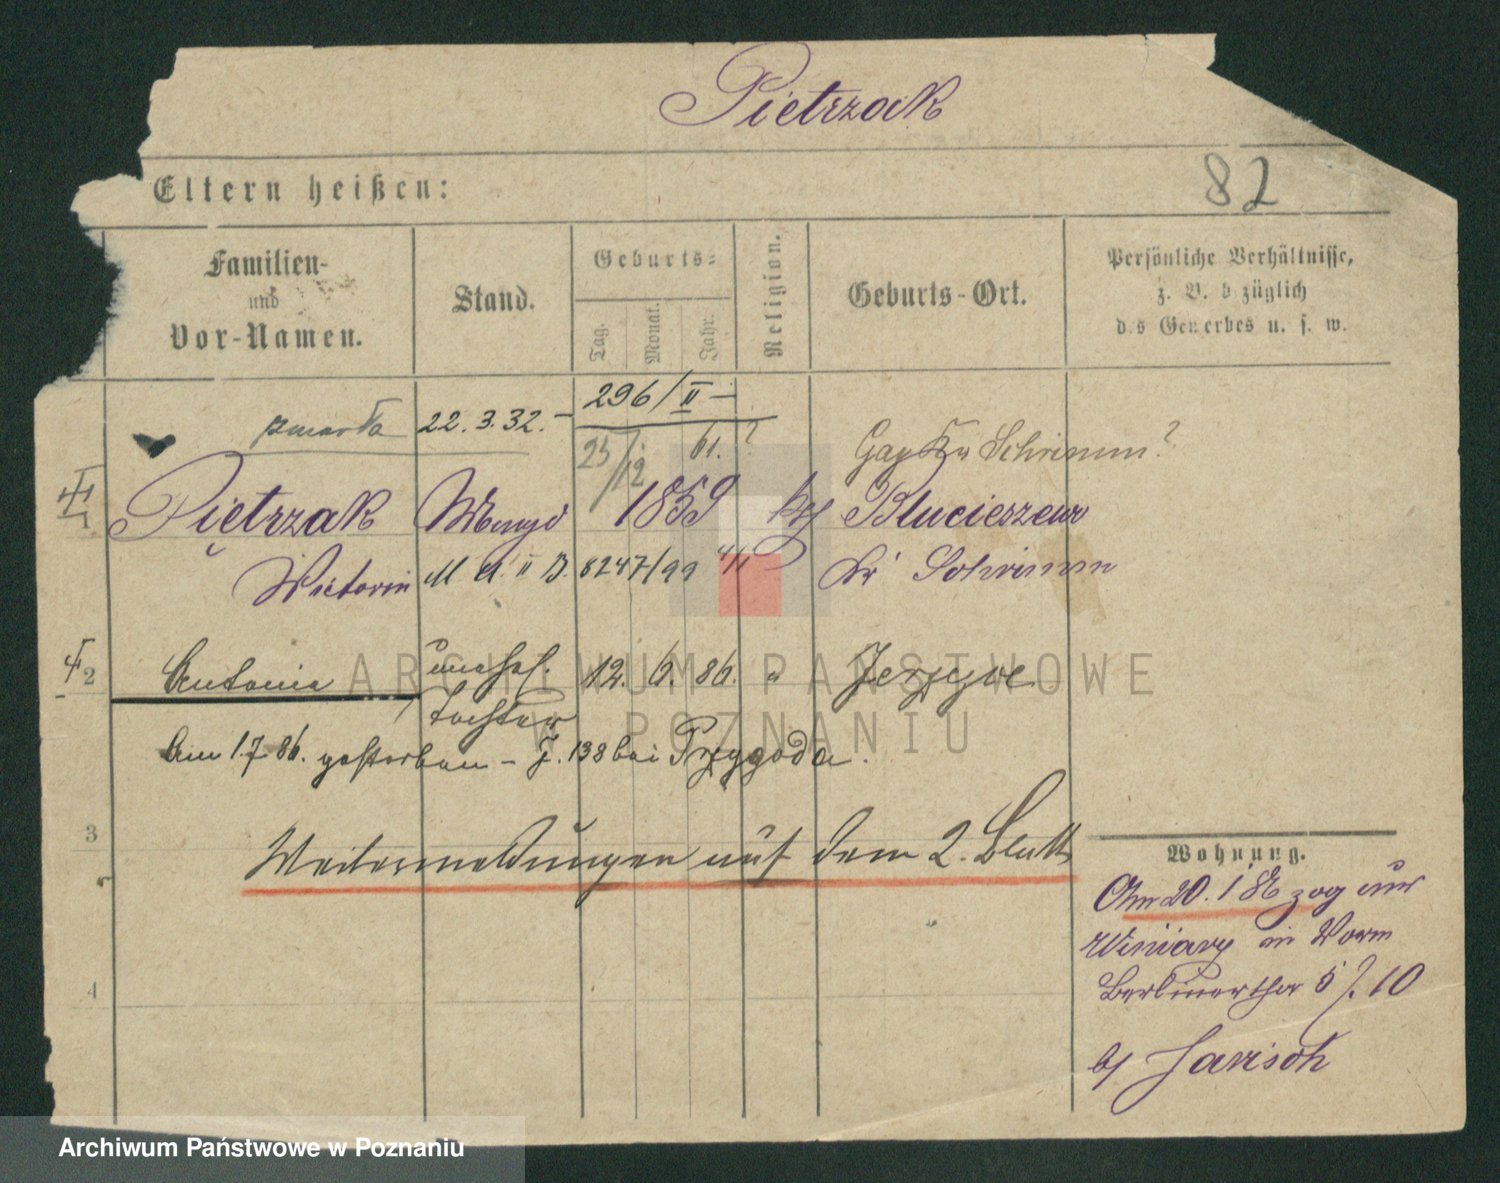 Pietrzak
Eltern heißen:
82
Familien-
und
Vor-Namen.
Stand.
Geburts-
Tag.
Monat.
Jahr.
Religion.
Geburts-Ort.
Persönliche Verhältnisse,
z. B. bezüglich
des Gewerbes u. s. w.
296/II –
zmarła 22.3.32. –
25/12 61. ? Gay Kr Schrimm?
1 Pietrzak 1859 Blucieszewo
Wictorin 8247/99 Kr Schrimm
2 Antonia unehel. 12. 6. 86. Jerzyce
Tochter
Am 1.7.86. gestorben – J. 138 bei Przygoda.
3
Weitermeldungen auf dem 2. Blatt
Wohnung.
Am 20. 1 86 zog aus
Winiary in Vorm
4
Berlinerthor 5 J. 10
b/ Jarisch
ARCHIWUM PAŃSTWOWE
W POZNANIU
Archiwum Państwowe w Poznaniu